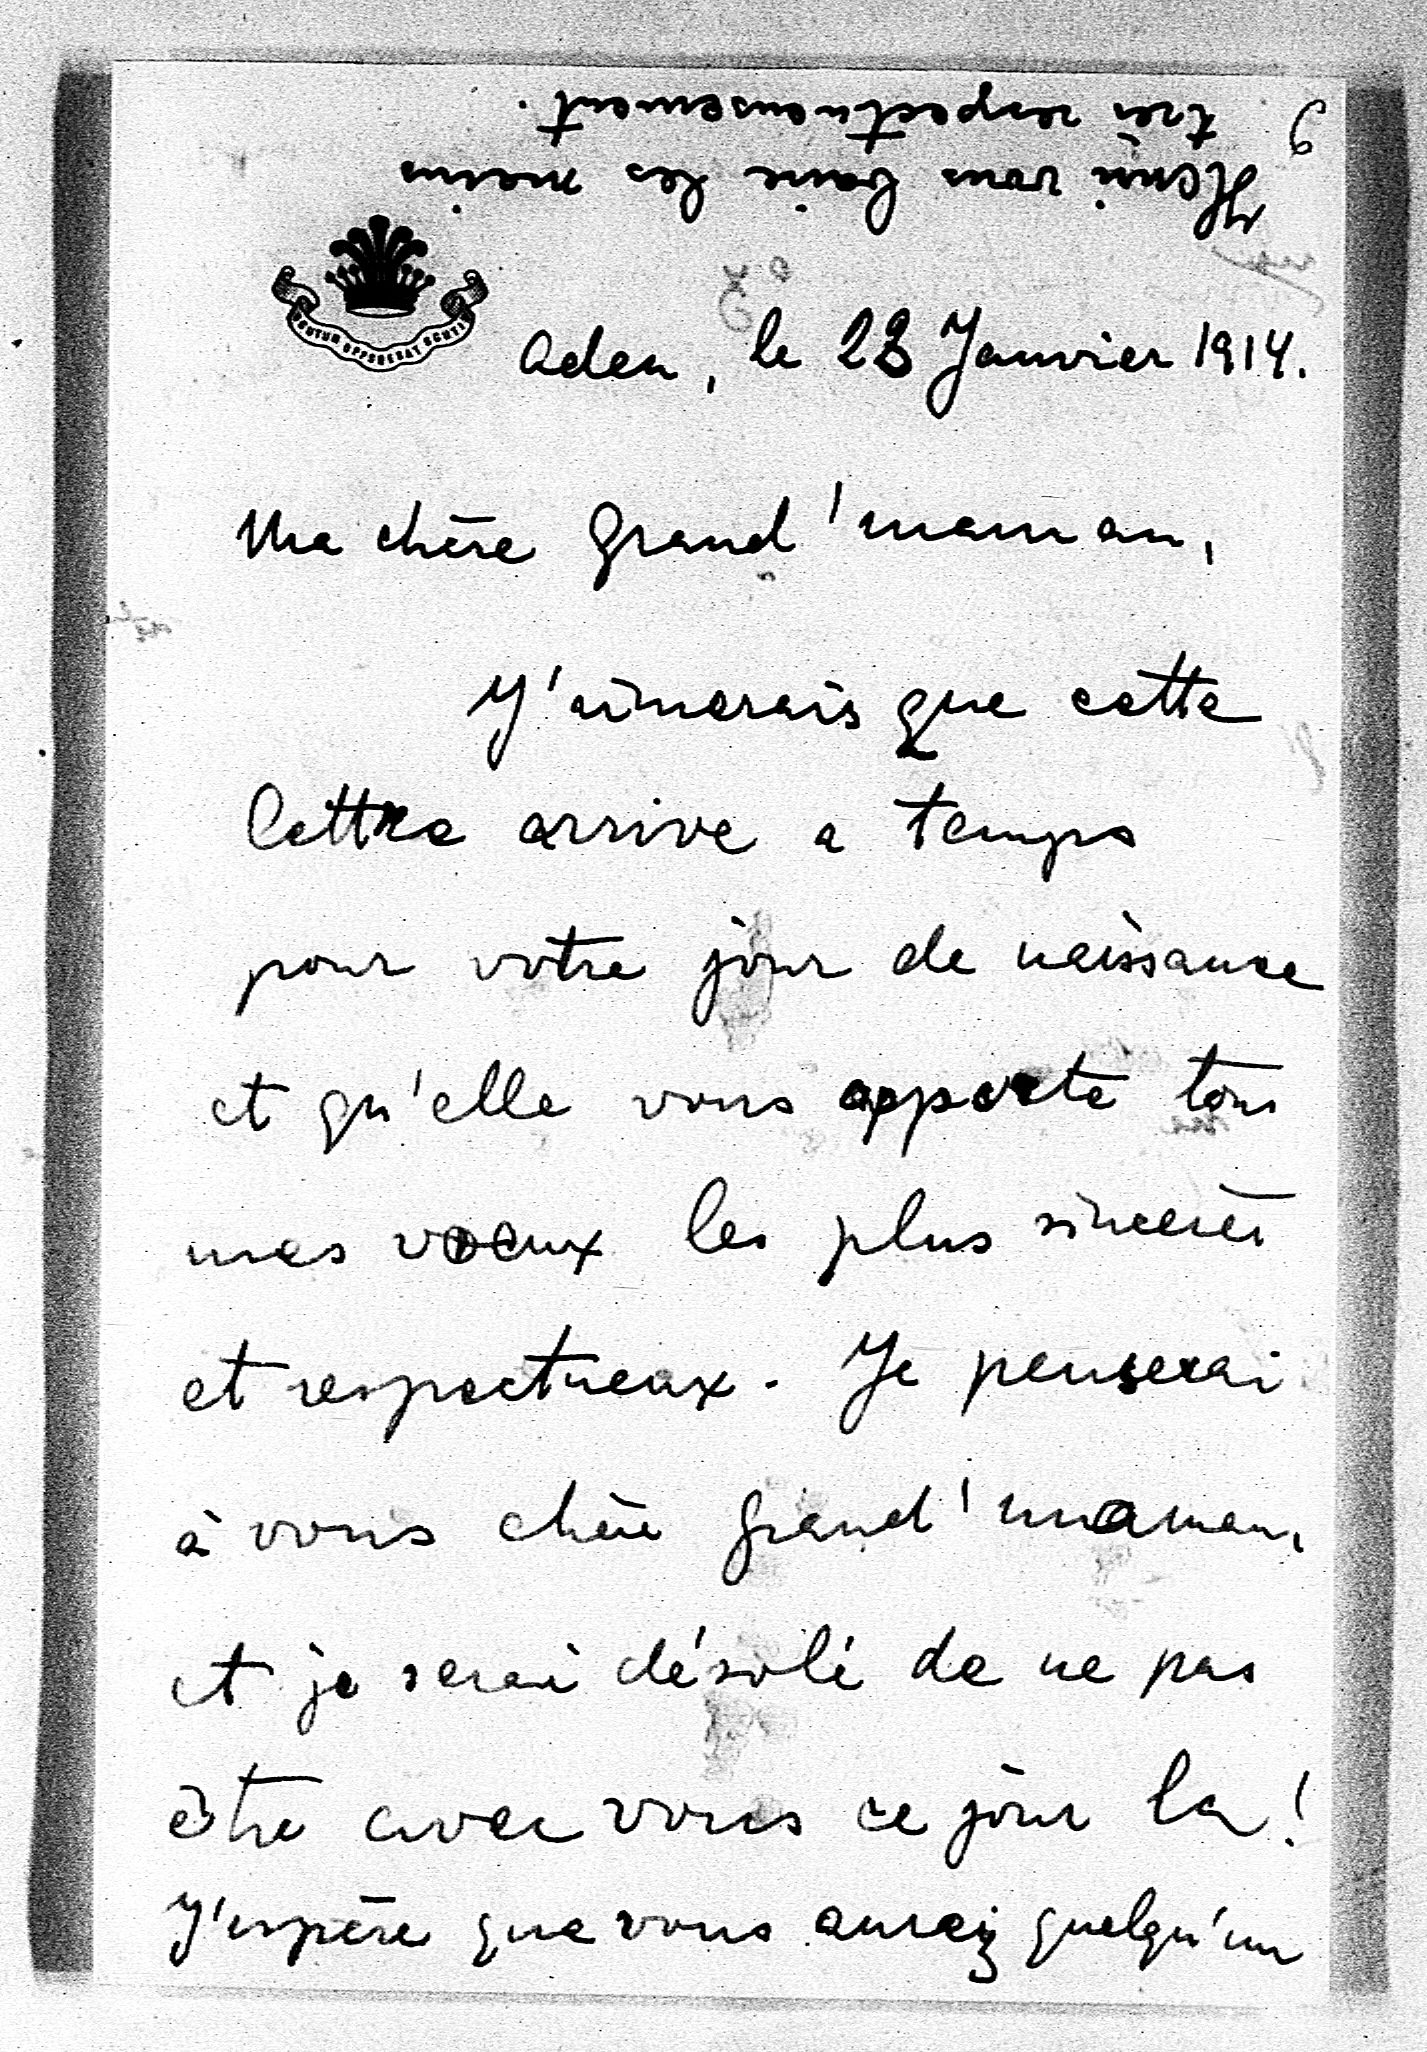 Henri vous baise les mains
très respectueusement.
Aden, le 28 Janvier 1914.
Ma chère Grand'maman,
J'aimerais que cette
lettre arrive a temps
pour votre jour de naissance
et qu'elle vous apporte tous
mes voeux les plus sincères
et respectueux. Je penserai
à vous chère Grand'maman,
et je serai désolé de ne pas
être avec vous ce jour la!
J'espère que vous aurez quelqu'un